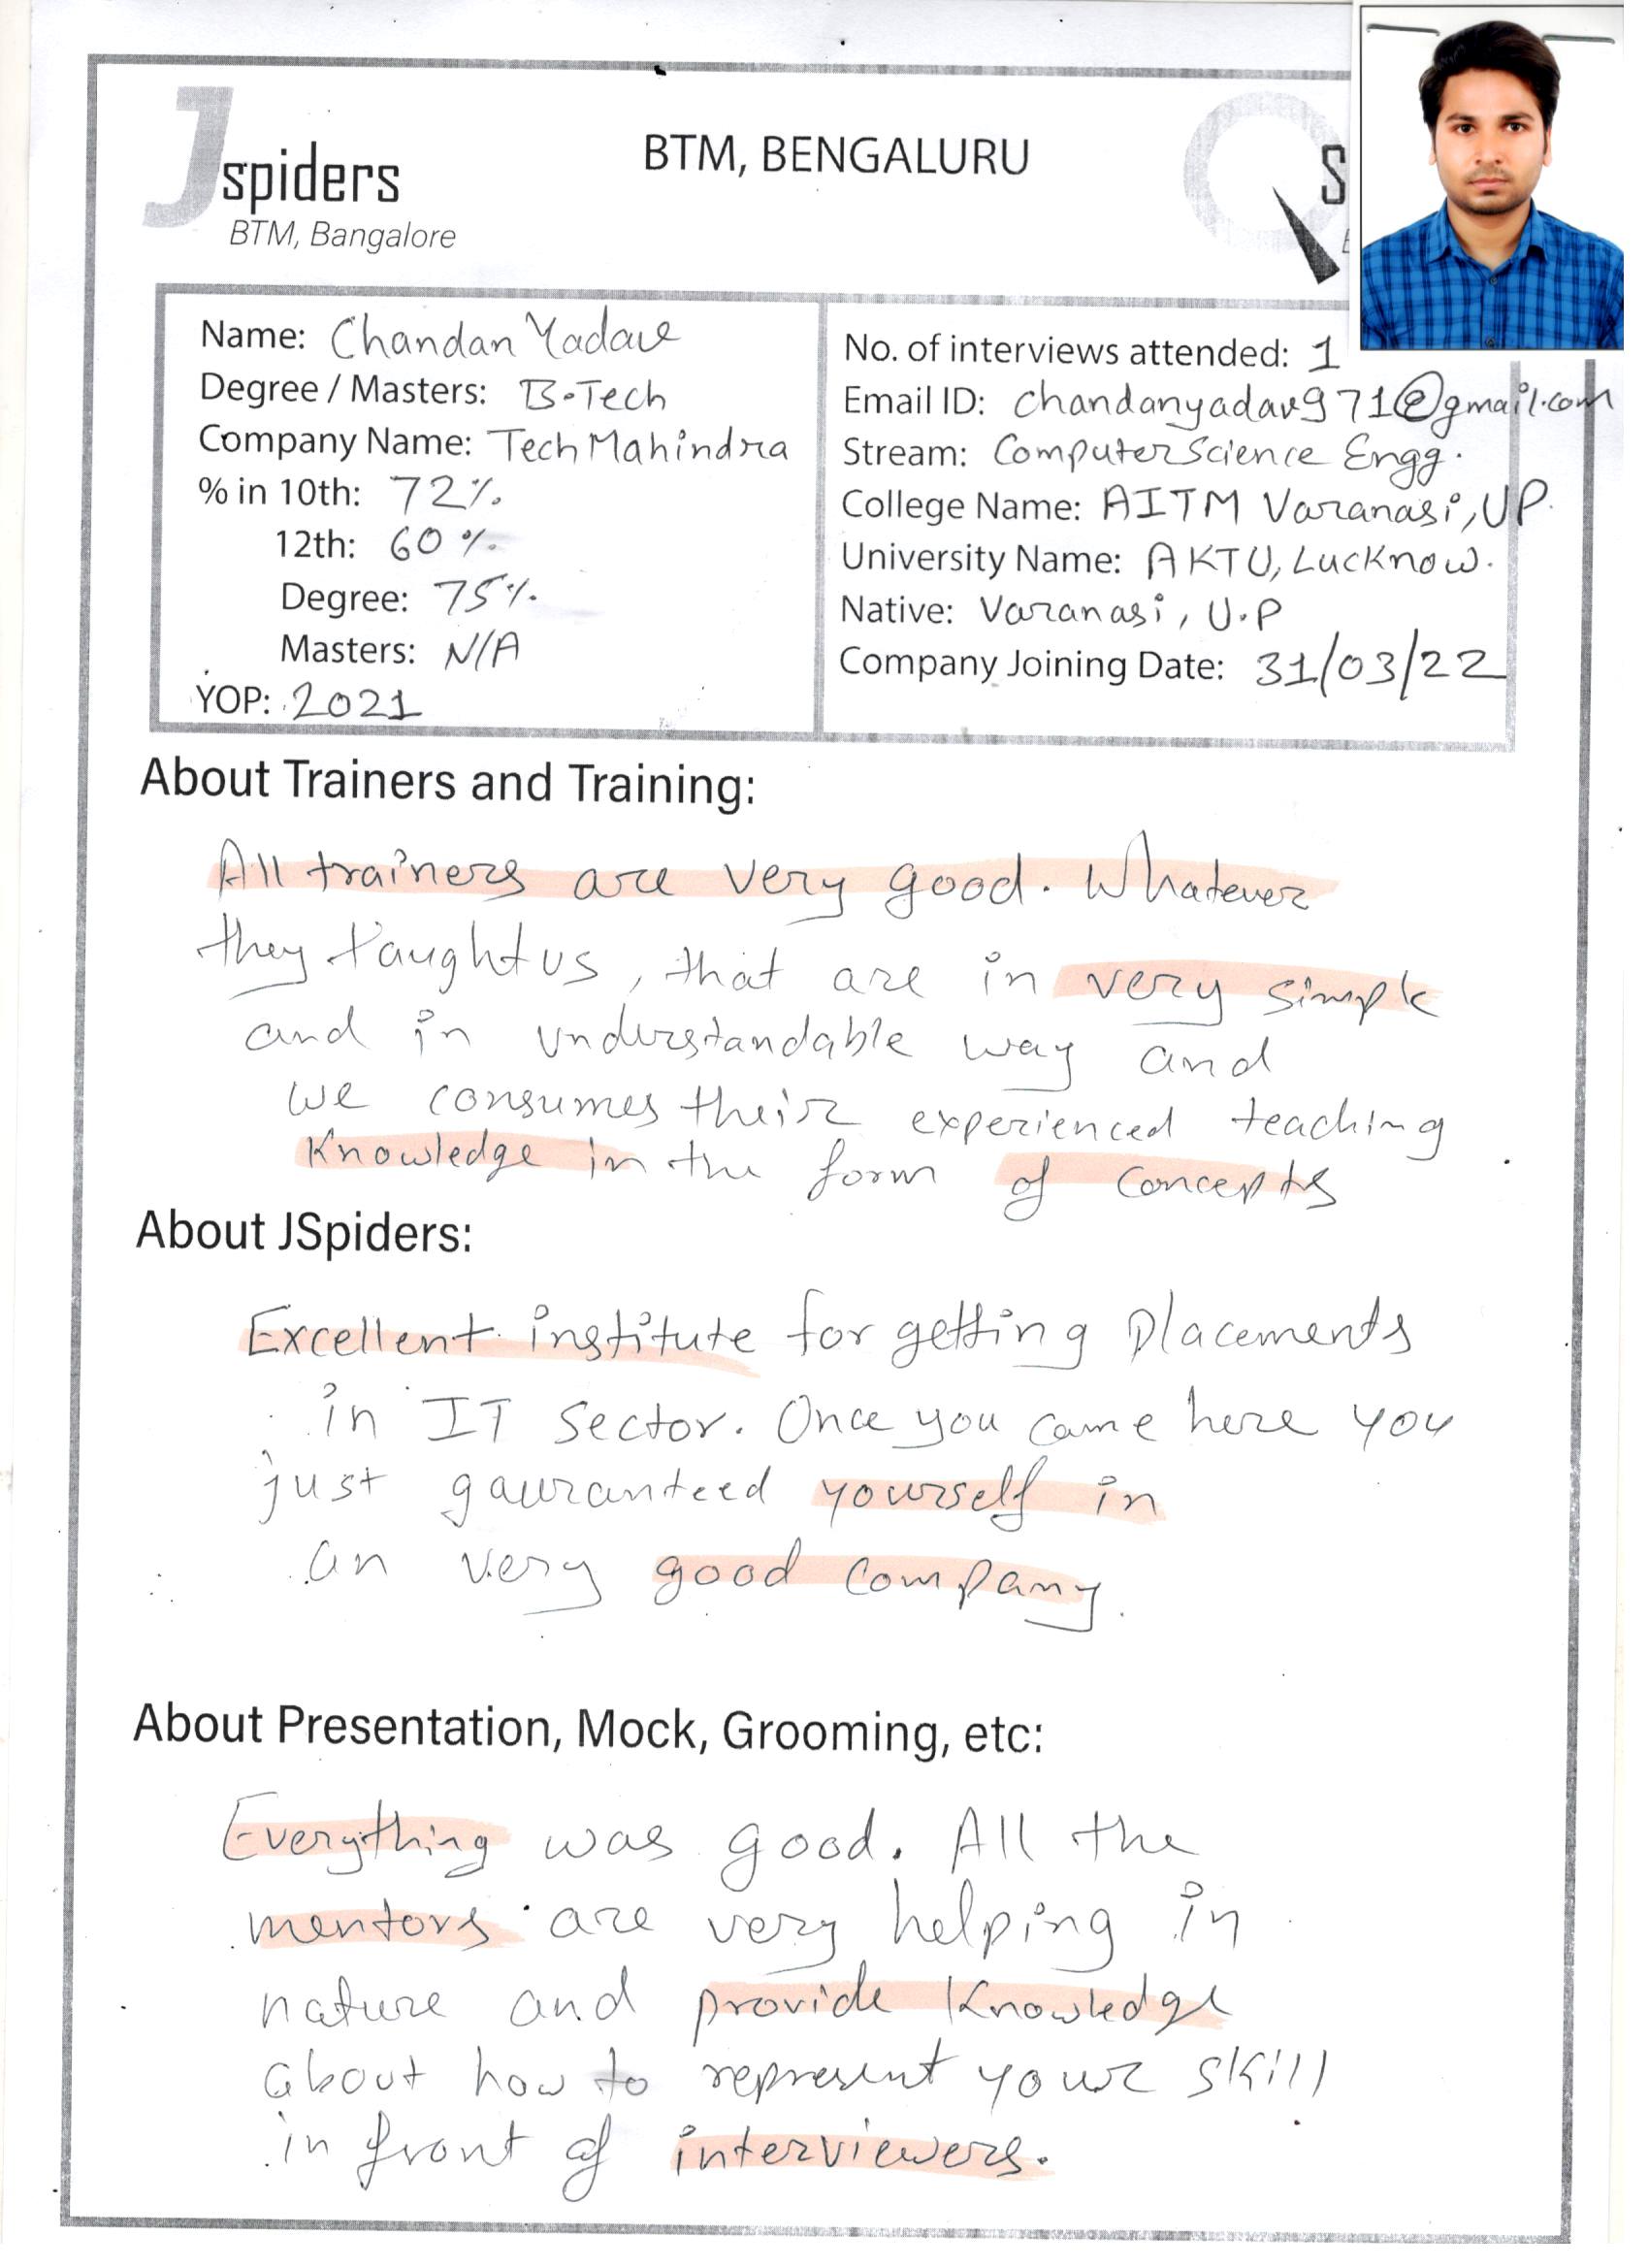 Jspiders
BTM, Bangalore
BTM, BENGALURU
S
Name: Chandan Yadav
Degree / Masters: B.Tech
Company Name: Tech Mahindra
% in 10th: 72%
12th: 60%
Degree: 75%
Masters: N/A
YOP: 2021
No. of interviews attended: 1
Email ID: chandanyadav971@gmail.com
Stream: Computer Science Engg.
College Name: AITM Varanasi, UP.
University Name: AKTU, Lucknow.
Native: Varanasi, U.P
Company Joining Date: 31/03/22
About Trainers and Training:
All trainers are very good. Whatever
they taught us, that are in very simple
and in understandable way and
we consumes their experienced teaching
Knowledge in the form of concepts
About JSpiders:
Excellent institute for getting Placements
in IT Sector. Once you came here you
just gauranteed yourself in
an very good company.
About Presentation, Mock, Grooming, etc:
Everything was good. All the
mentors are very helping in
nature and provide Knowledge
about how to represent your skill
in front of interviewers.